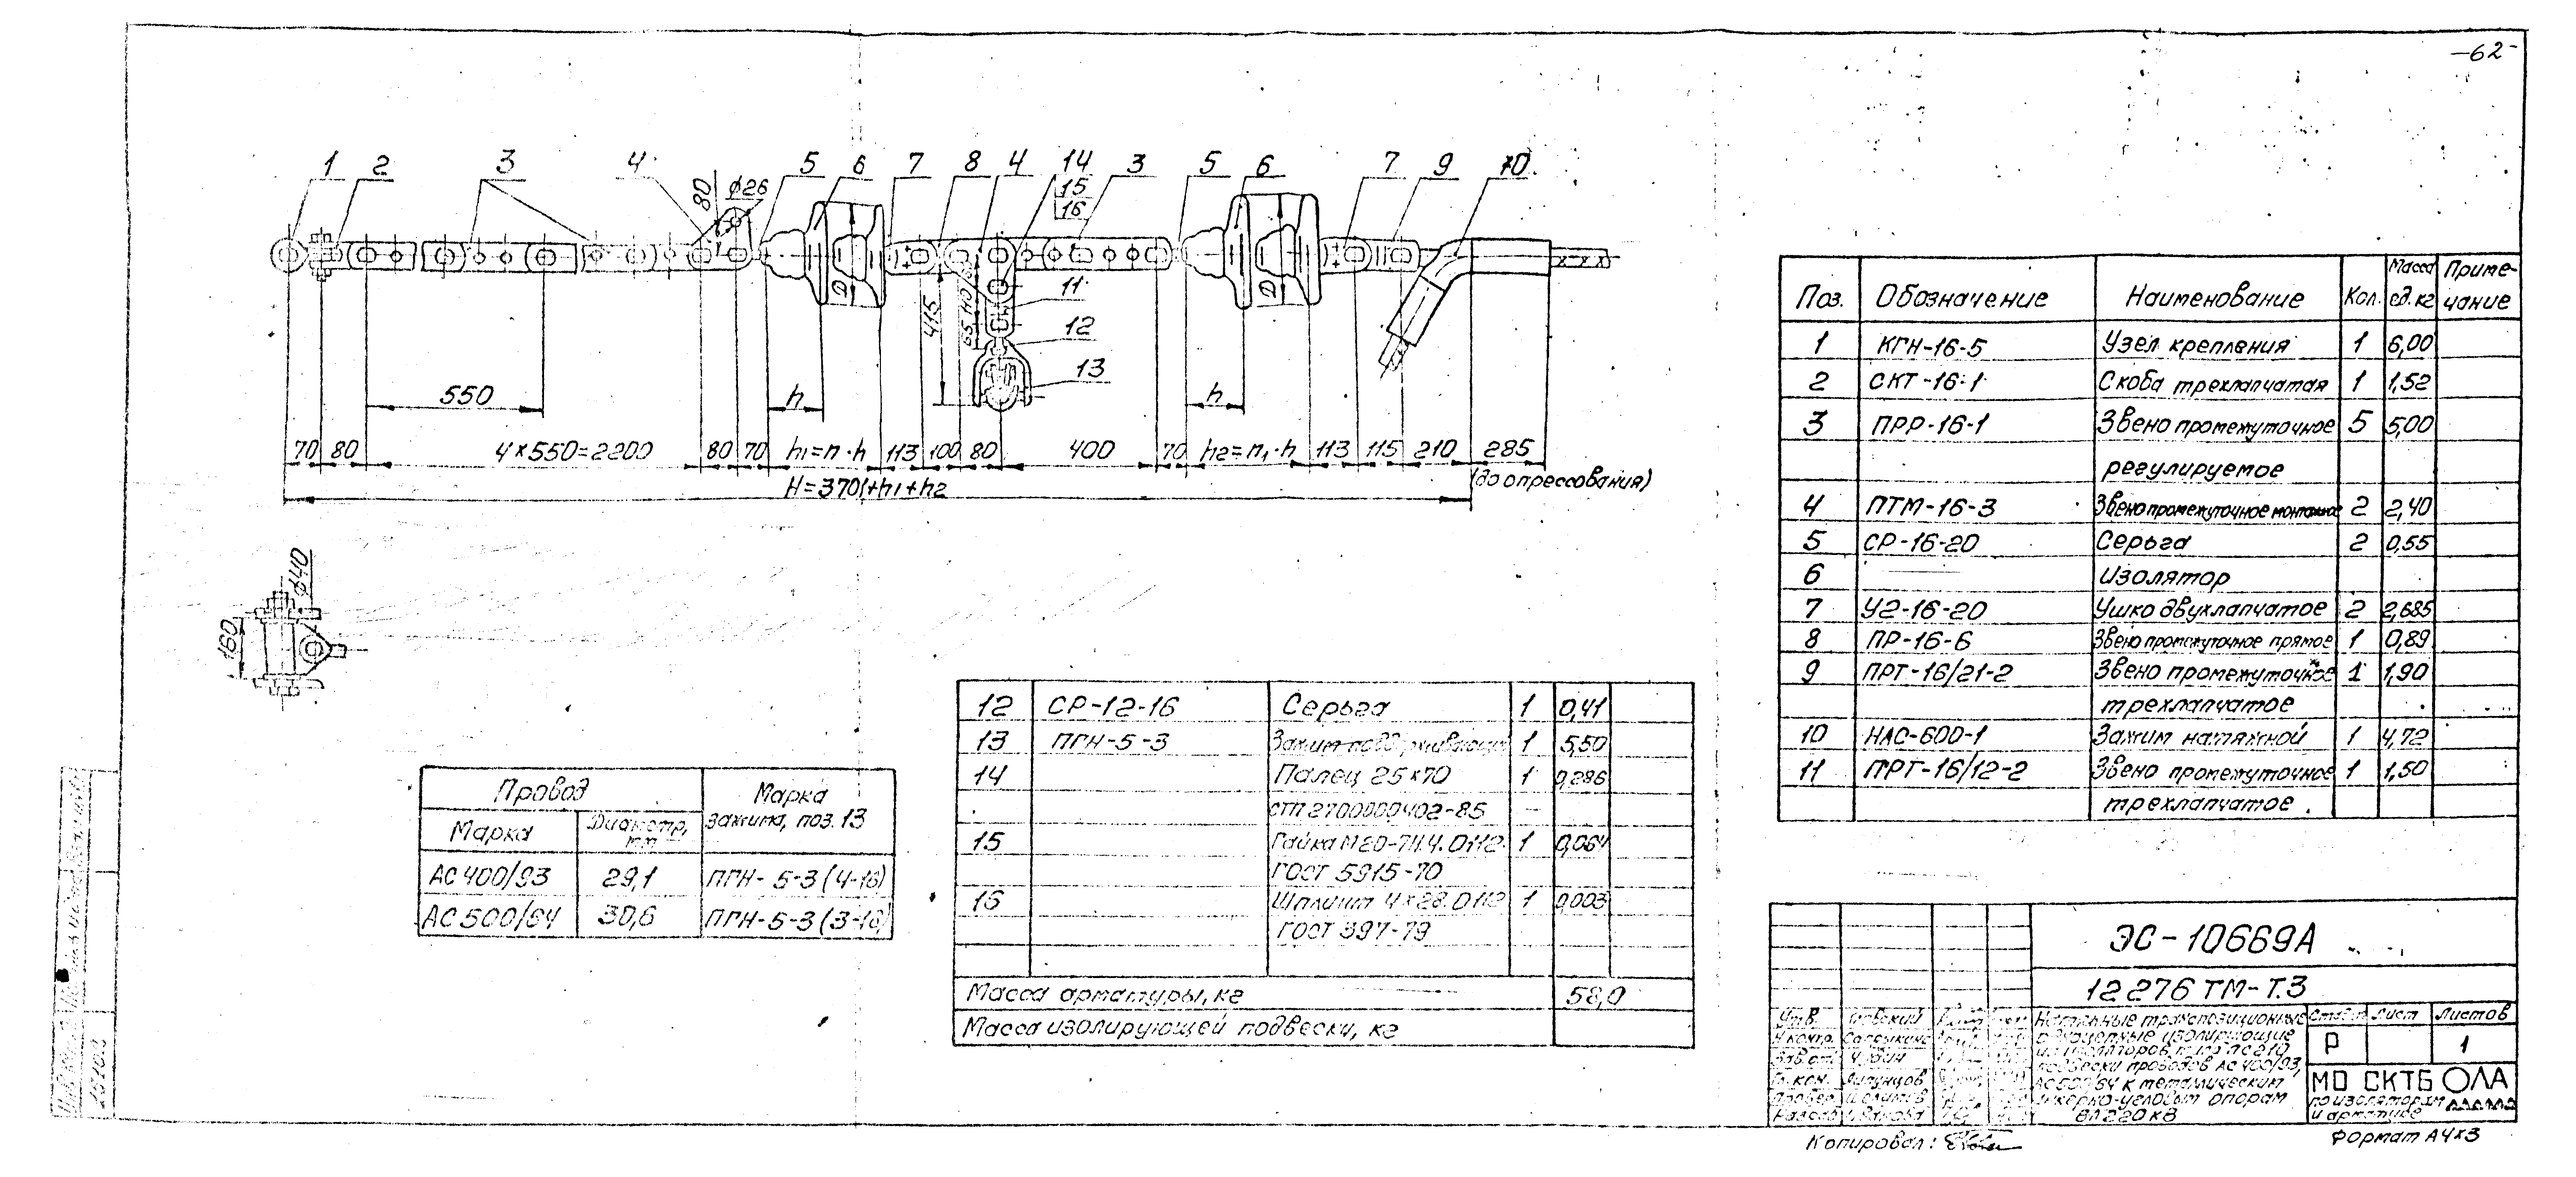 -62-
1 2 3 4 80 ⌀26 5 6 7 8 4 14 3 5 6 7 9 10
15
16
D
D
11
12
13
415
110
65
550
h
h
70 80 4×550=2200 80 70 h1=n·h 113 100 80 400 70 h2=n1·h 113 115 210 285
H=3701+h1+h2
(до опрессования)
⌀40
160
Поз. Обозначение Наименование Кол. Масса ед. кг Приме-
чание
1 КГН-16-5 Узел крепления 1 6,00
2 СКТ-16-1 Скоба трехлапчатая 1 1,52
3 ПРР-16-1 Звено промежуточное 5 5,00
регулируемое
4 ПТМ-16-3 Звено промежуточное монтажное 2 2,40
5 СР-16-20 Серьга 2 0,55
6 Изолятор
7 У2-16-20 Ушко двухлапчатое 2 2,685
8 ПР-16-6 Звено промежуточное прямое 1 0,89
9 ПРТ-16/21-2 Звено промежуточное 1 1,90
трехлапчатое
10 НАС-600-1 Зажим натяжной 1 4,72
11 ПРТ-16/12-2 Звено промежуточное 1 1,50
трехлапчатое
12 СР-12-16 Серьга 1 0,41
13 ПГН-5-3 Зажим поддерживающий 1 5,50
14 Палец 25×70 1 0,286
СТП 2700000402-85
15 Гайка М20-7Н.4.0112 1 0,064
ГОСТ 5915-70
16 Шплинт 4×28.0112 1 0,003
ГОСТ 397-79
Масса арматуры, кг 58,0
Масса изолирующей подвески, кг
Провод Марка
зажима, поз. 13
Марка Диаметр,
мм
АС 400/93 29,1 ПГН-5-3 (4-16)
АС 500/64 30,6 ПГН-5-3 (3-16)
ЭС-10669А
12276 ТМ-Т.3
Утв.
Н.контр.
Зав.от.
Гл.кон.
Провер.
Разраб.
Натяжные транспозиционные
одноцепные изолирующие
подвески проводов АС 400/93,
АС 500/64 к металлическим
анкерно-угловым опорам
ВЛ 220 кВ
Стадия Лист Листов
Р 1
МО СКТБ ОЛА
по изоляторам
и арматуре
Копировал:
Формат А4×3